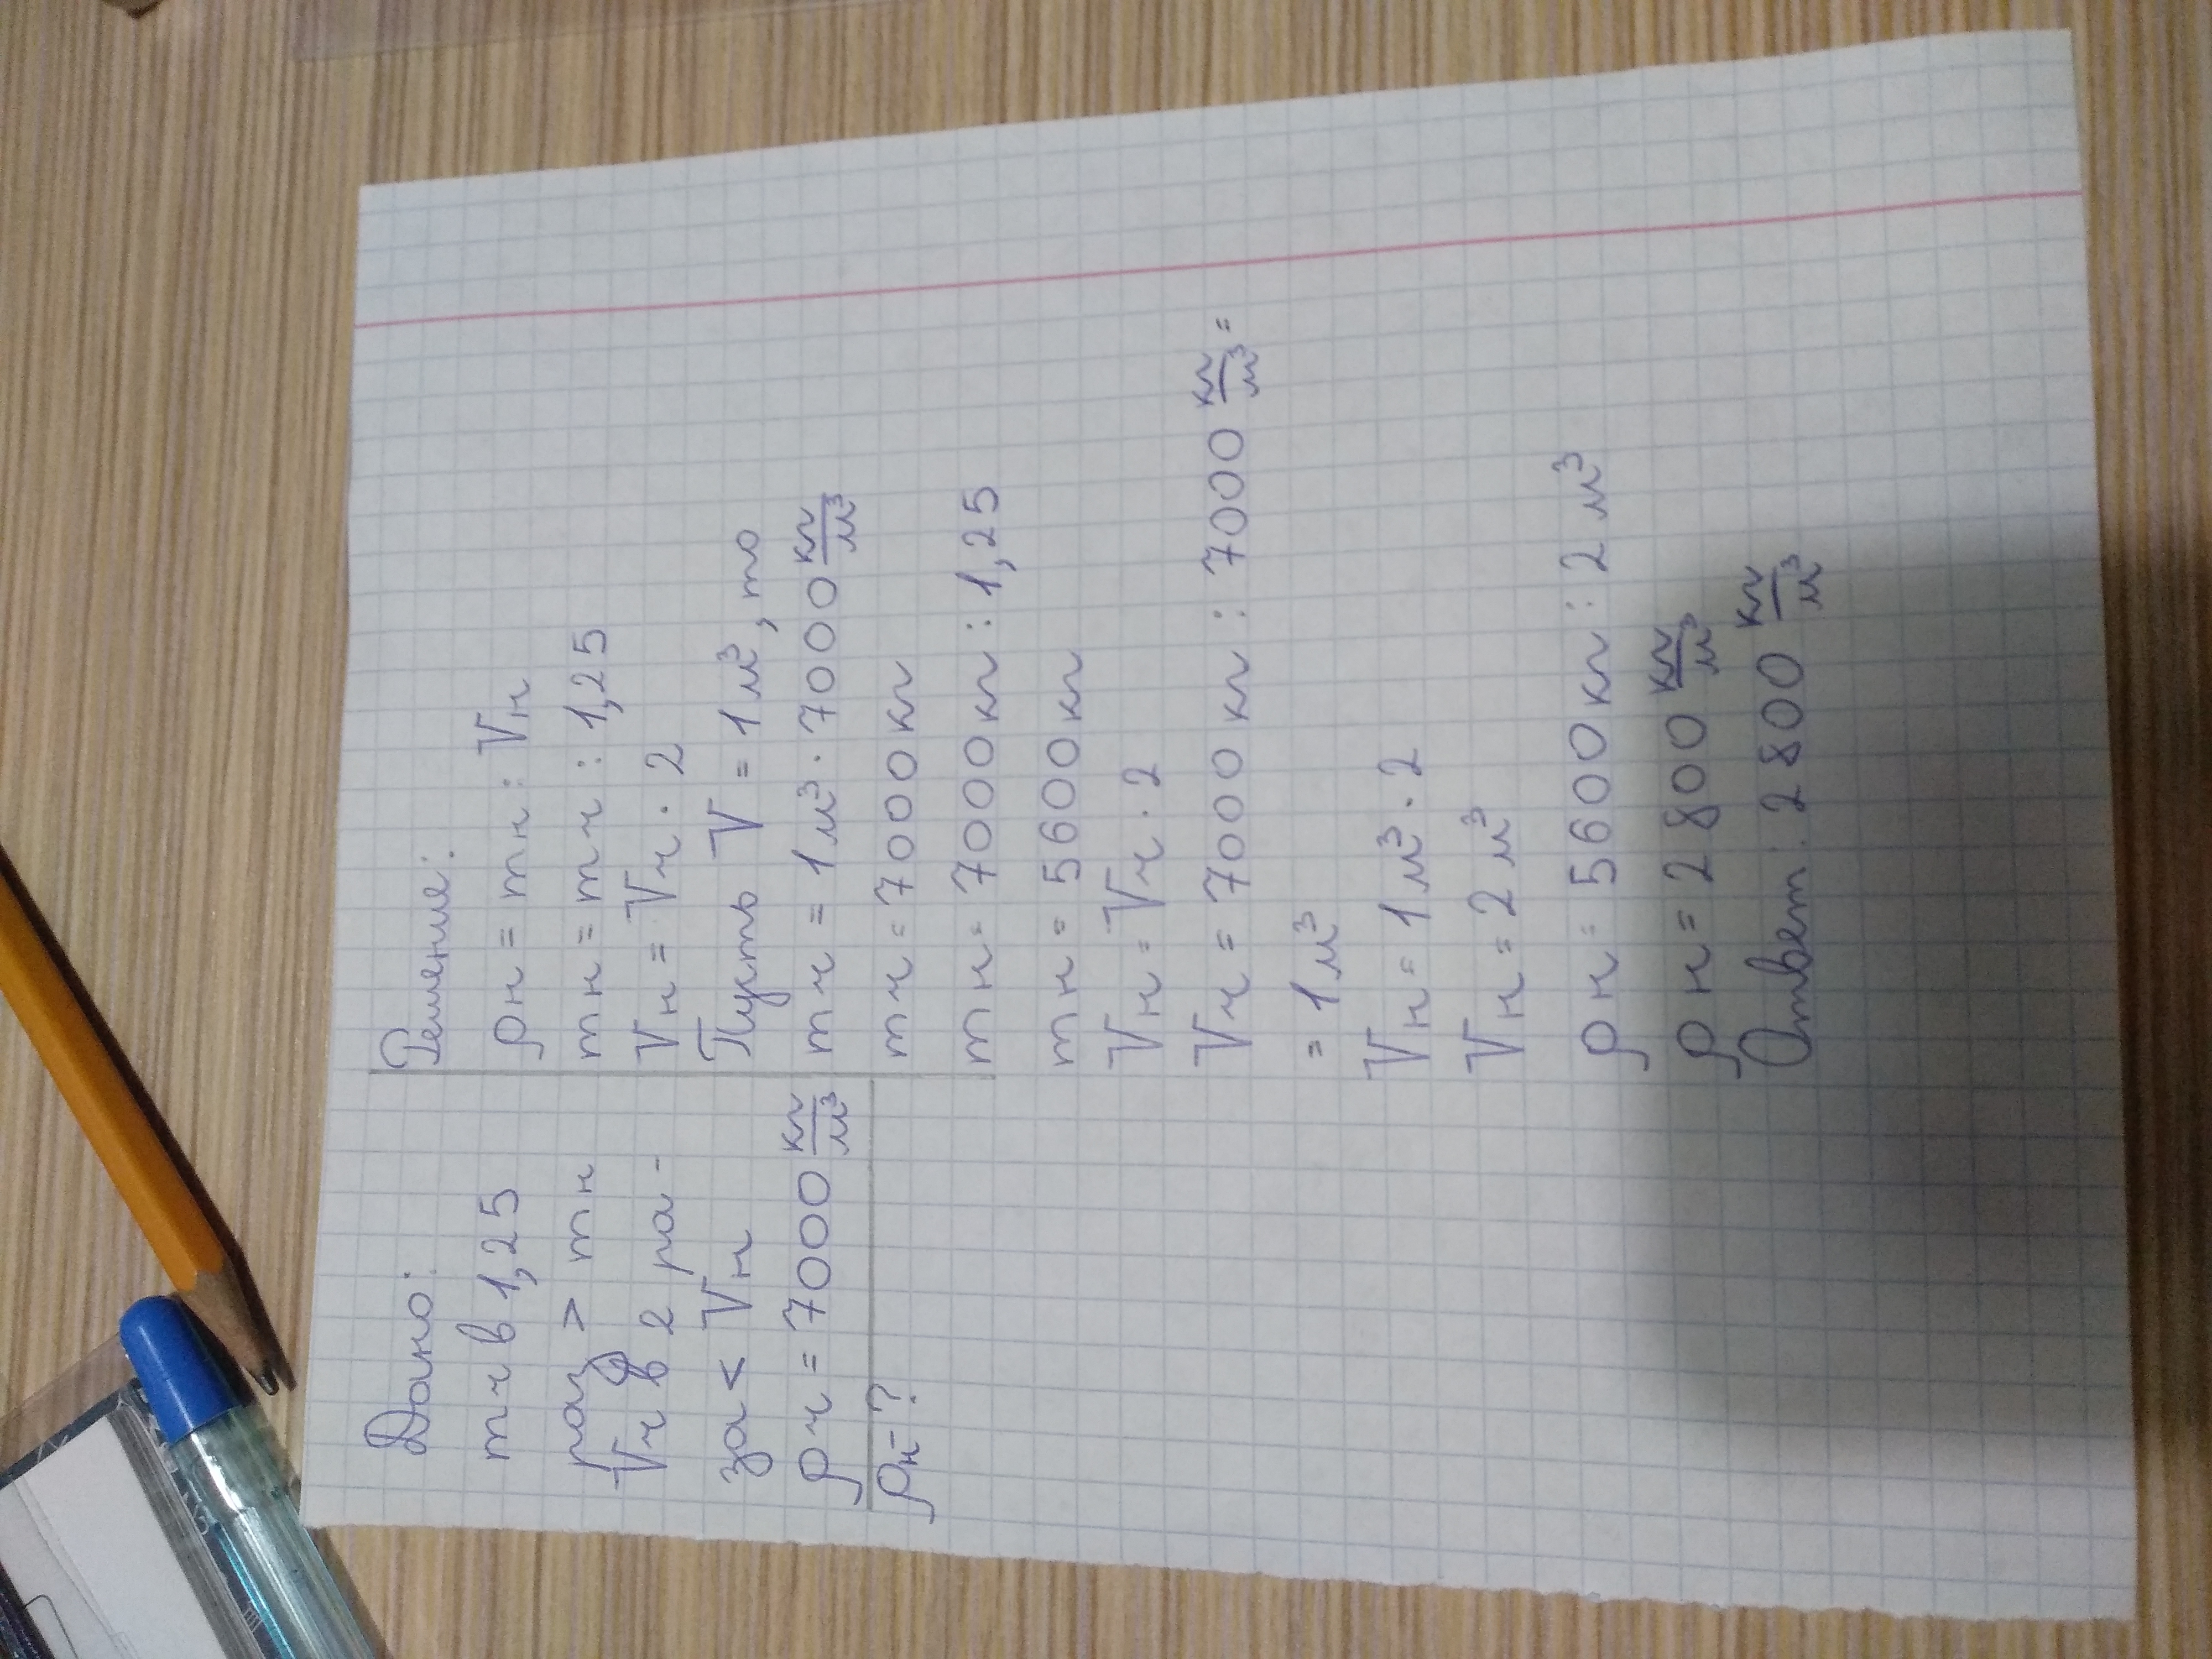 Дано:
mч в 1,25
раз > mн
Vч в 2 ра-
за < Vн
ρч = 7000 кг/м³
ρн - ?
Решение:
ρн = mн : Vн
mн = mч : 1,25
Vн = Vч · 2
Пусть V = 1 м³, то
mч = 1 м³ · 7000 кг/м³
mч = 7000 кг
mн = 7000 кг : 1,25
mн = 5600 кг
Vн = Vч · 2
Vч = 7000 кг : 7000 кг/м³ =
= 1 м³
Vн = 1 м³ · 2
Vн = 2 м³
ρн = 5600 кг : 2 м³
ρн = 2800 кг/м³
Ответ: 2800 кг/м³